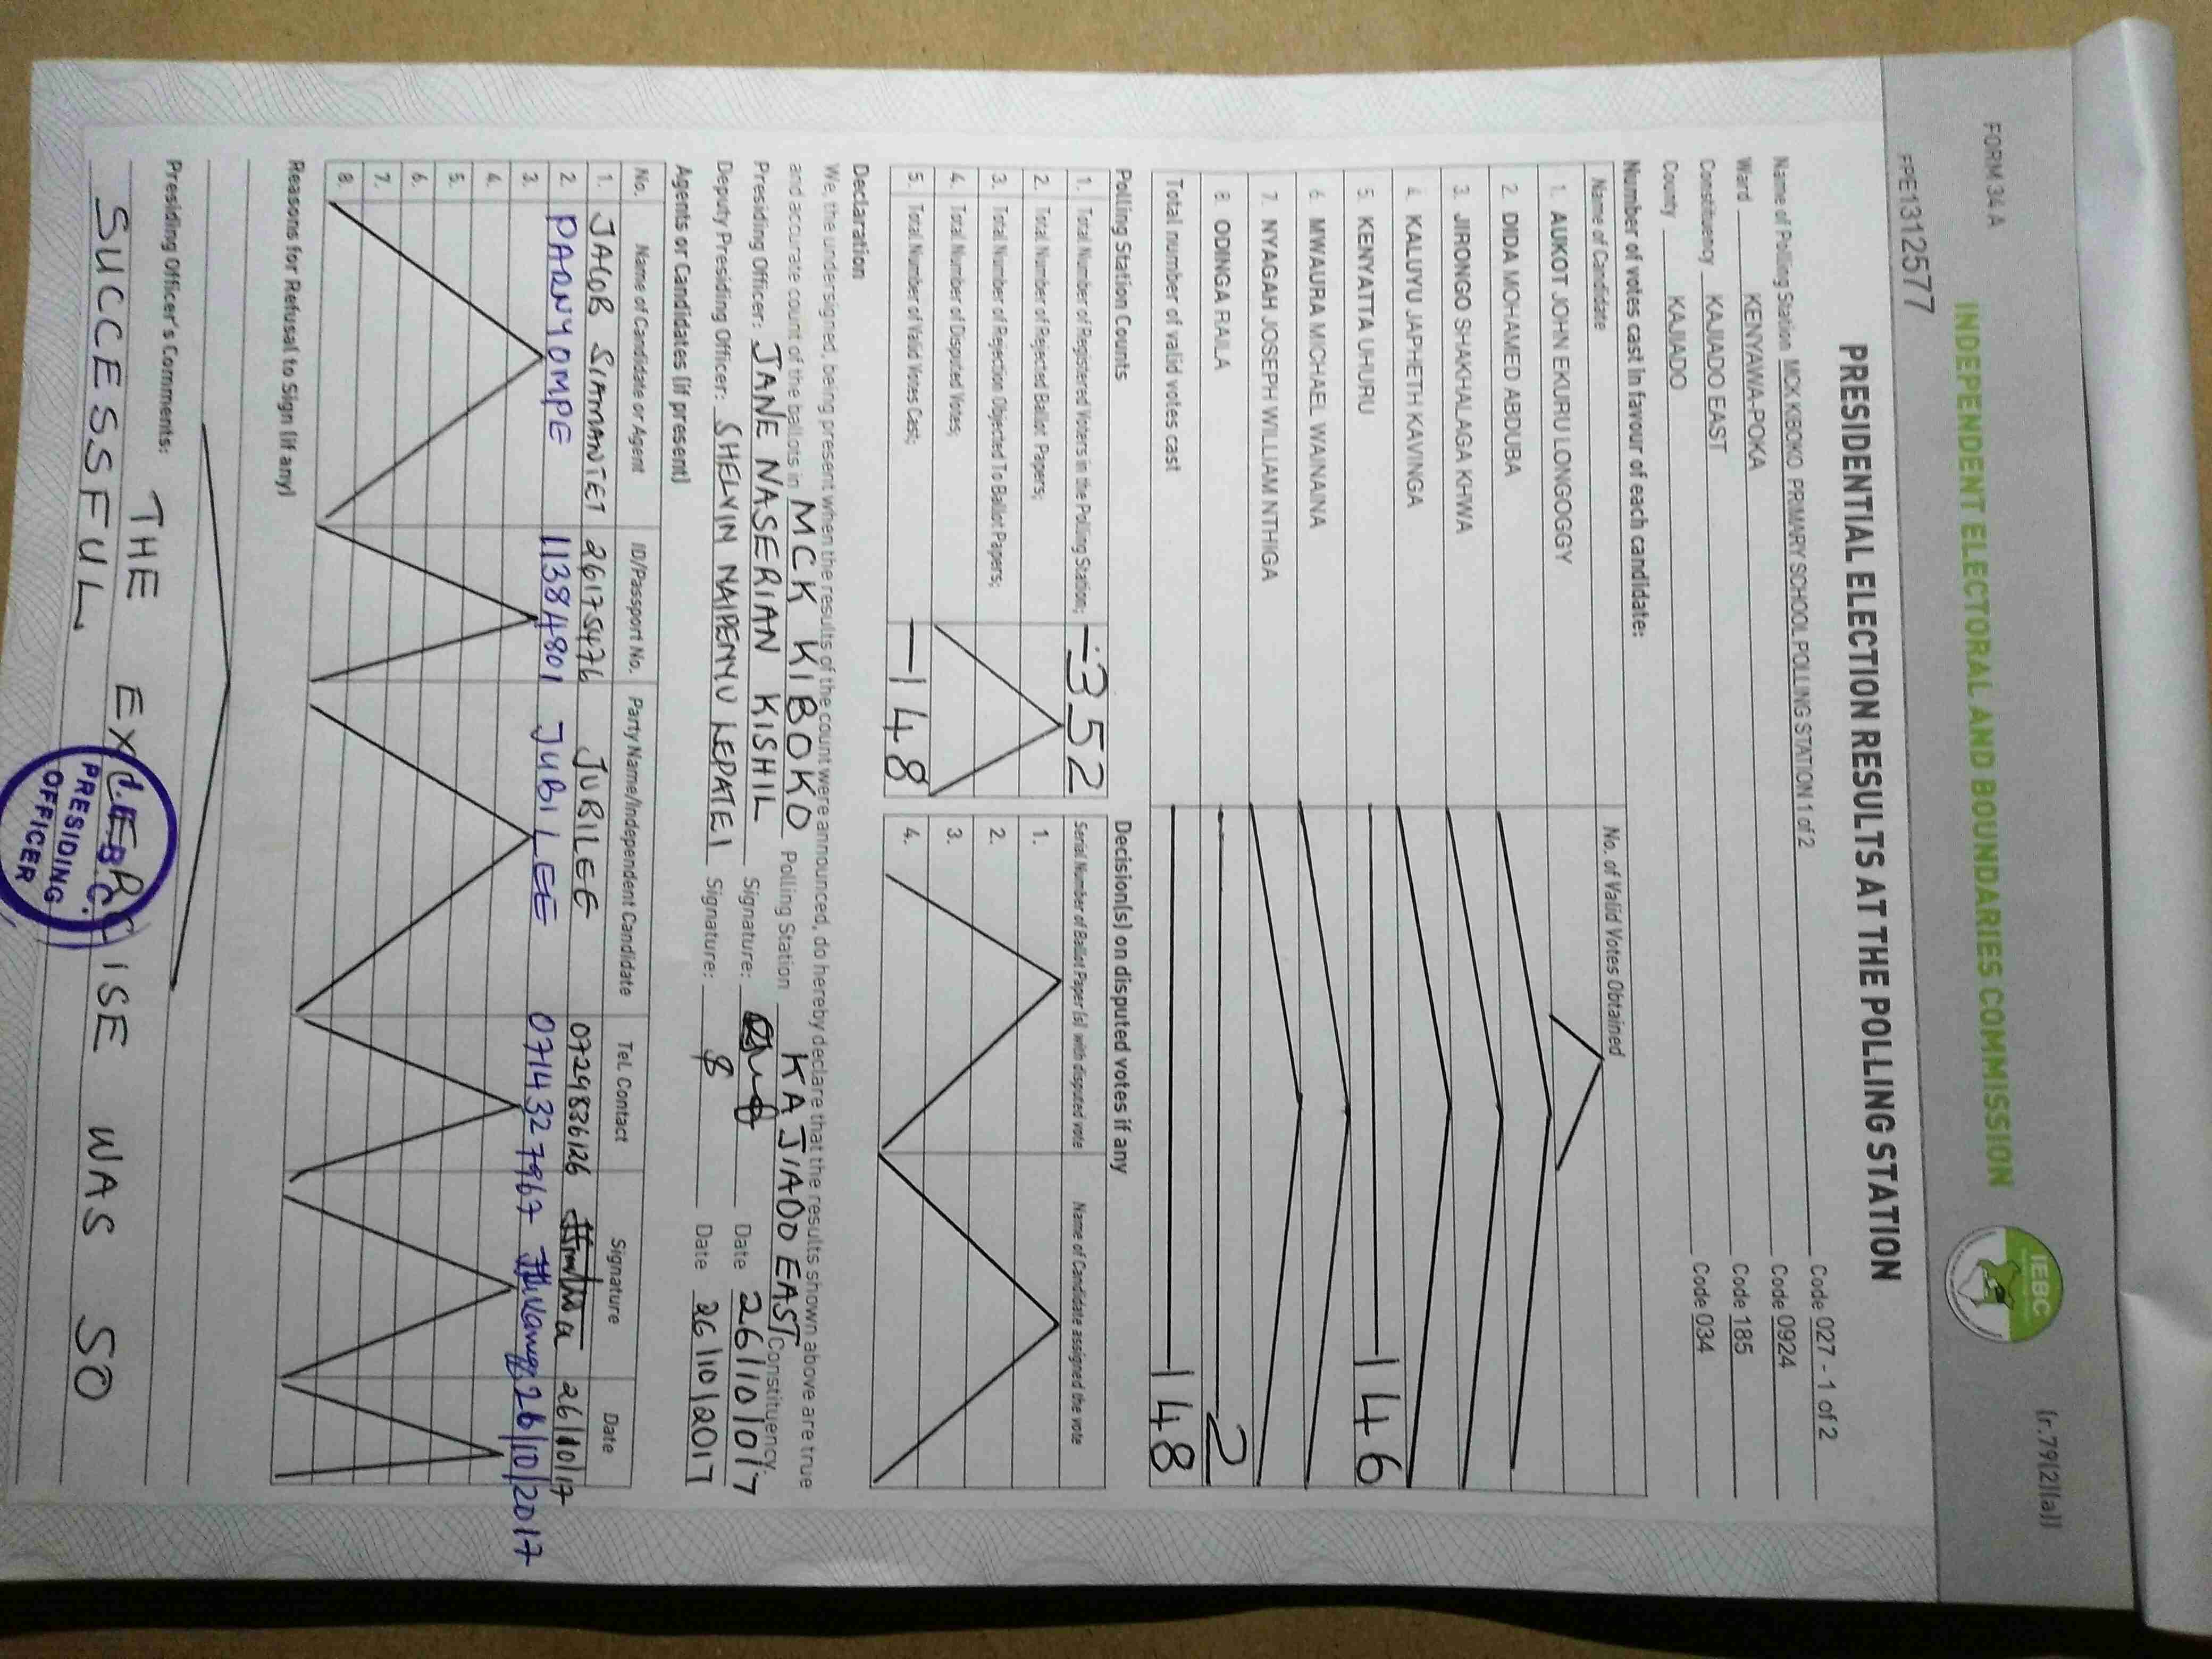 FORM 34 A
(r.79(2)(a))
INDEPENDENT ELECTORAL AND BOUNDARIES COMMISSION
IEBC
PPE1312577
PRESIDENTIAL ELECTION RESULTS AT THE POLLING STATION
Name of Polling Station MCK KIBOKO PRIMARY SCHOOL POLLING STATION 1 of 2 Code 027 - 1 of 2
Ward KENYAWA-POKA Code 0924
Constituency KAJIADO EAST Code 185
County KAJIADO Code 034
Number of votes cast in favour of each candidate:
Name of Candidate No. of Valid Votes Obtained
1. AUKOT JOHN EKURU LONGOGGY
2. DIDA MOHAMED ABDUBA
3. JIRONGO SHAKHALAGA KHWA
4. KALUYU JAPHETH KAVINGA
5. KENYATTA UHURU 146
6. MWAURA MICHAEL WAINAINA
7. NYAGAH JOSEPH WILLIAM NTHIGA
8. ODINGA RAILA 2
Total number of valid votes cast 148
Polling Station Counts
1. Total Number of Registered Voters in the Polling Station; 352
2. Total Number of Rejected Ballot Papers;
3. Total Number of Rejection Objected To Ballot Papers;
4. Total Number of Disputed Votes;
5. Total Number of Valid Votes Cast; 148
Decision(s) on disputed votes if any
Serial Number of Ballot Paper (s) with disputed vote Name of Candidate assigned the vote
1.
2.
3.
4.
Declaration
We, the undersigned, being present when the results of the count were announced, do hereby declare that the results shown above are true
and accurate count of the ballots in MCK KIBOKO Polling Station KAJIADO EAST Constituency.
Presiding Officer: JANE NASERIAN KISHIL Signature: Date 26/10/017
Deputy Presiding Officer: SHELVIN NAIPENYU LEPATEI Signature: Date 26/10/2017
Agents or Candidates (if present)
No. Name of Candidate or Agent ID/Passport No. Party Name/Independent Candidate Tel. Contact Signature Date
1. JACOB SIAMANTET 26175476 JUBILEE 0729836126 26/10/17
2. PARNYOMPE 11384801 JUBILEE 0714327967 26/10/2017
3.
4.
5.
6.
7.
8.
Reasons for Refusal to Sign (if any)
Presiding Officer's Comments: THE EXCERCISE WAS SO
SUCCESSFUL
I.E.B.C.
PRESIDING
OFFICER